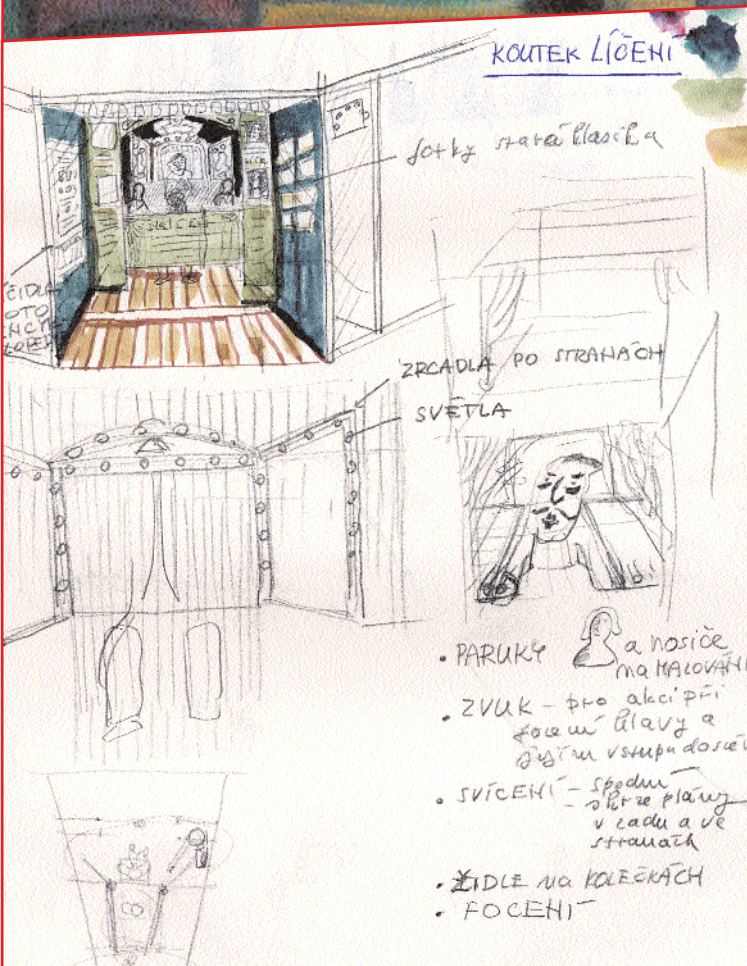 KOUTEK LÍČENÍ
fotky stará klasika
ZRCADLA PO STRANÁCH
SVĚTLA
• PARUKY a nosiče
na MALOVÁNÍ
• ZVUK – pro akci při
focení hlavy a
jejím vstupu do
• SVÍCENÍ – spodní
– skrze plány
v zadu a ve
stranách
• ŽIDLE NA KOLEČKÁCH
• FOCENÍ